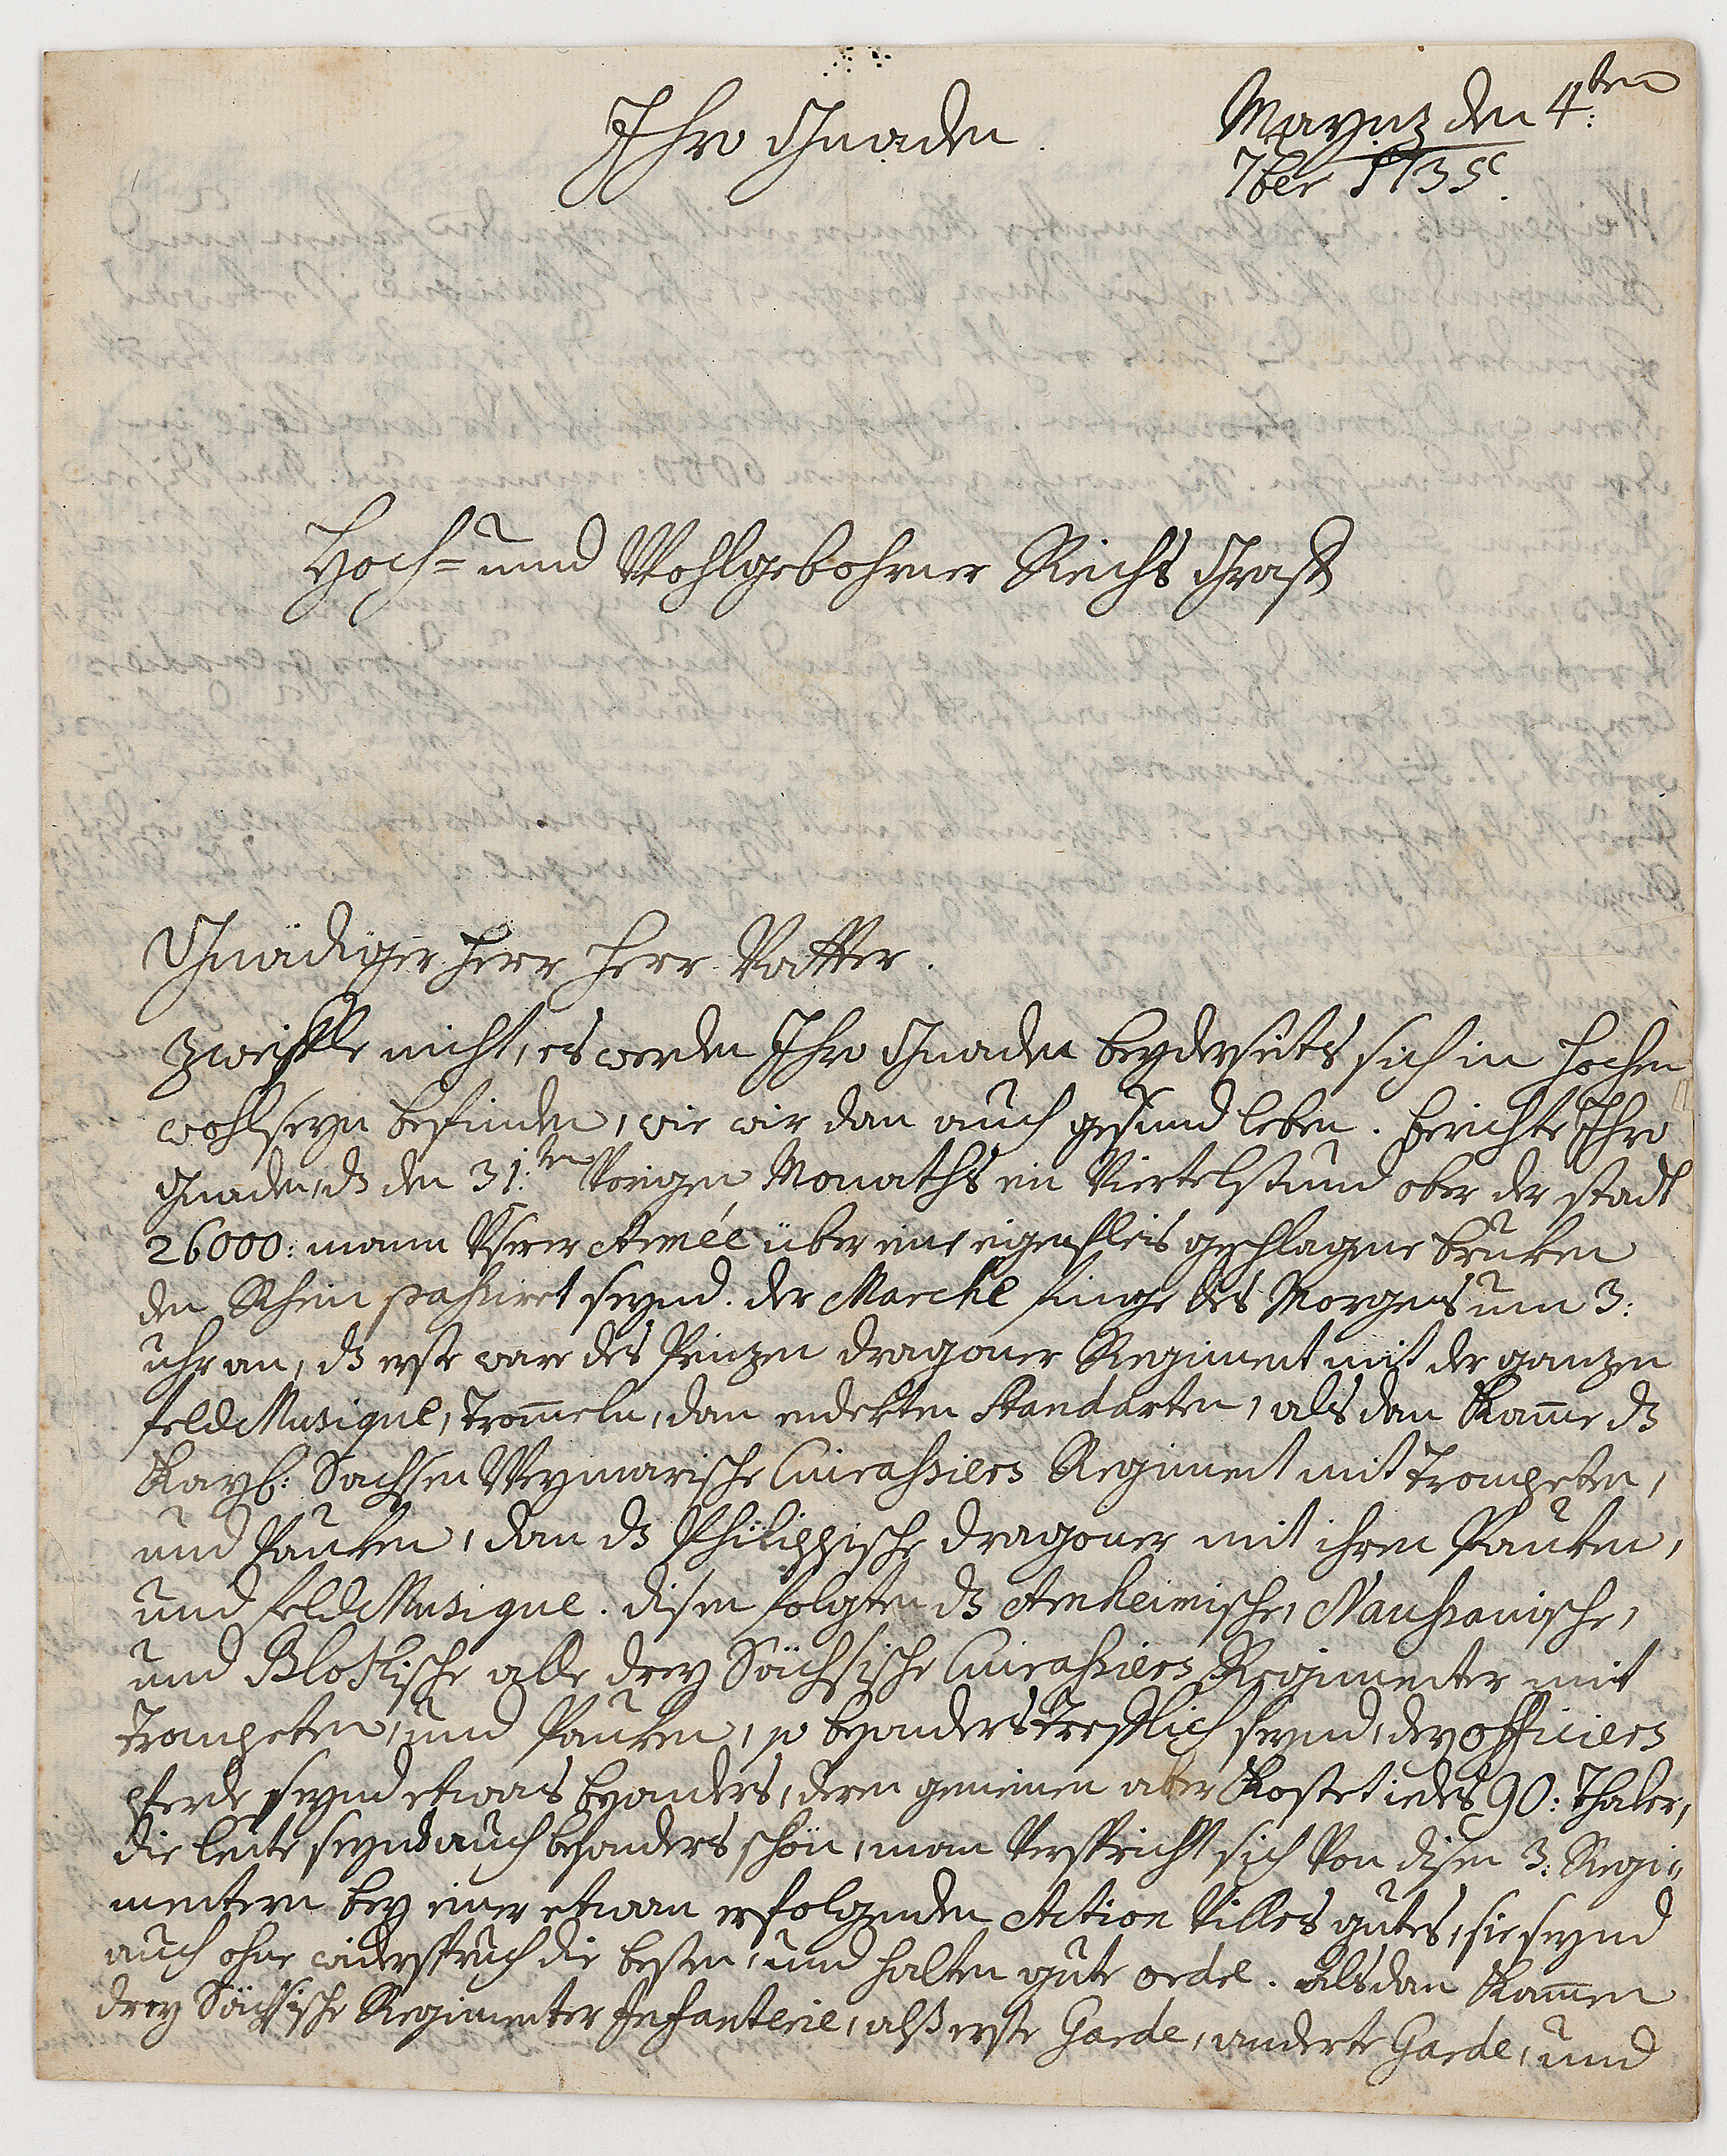 Ihro Gnaden.
Maynz den 4:ten
7ber 1735.
Hoch= und Wohlgebohrner Reichs Graff
Gnädiger Herr Herr Vatter.
Zweiffle nicht, es werden Ihro Gnaden beyderseits sich in hochem
wohlseyn befinden, wie wir dan auch gesund leben. berichte Ihro
Gnaden, dz den 31:ten Vorigen Monaths ein Viertelstund ober der stadt
26000: mann Unserer Armée über eine eigens geschlagene bruken
den Rhein passiret seynd. der Marche finge des Morgens um 3:
uhr an, dz erste ware des Prinzen dragoner Regiment mit der ganzen
feld Musique, trom̄eln, dan endekten Standarten, als dan kam̄e dz
Kays: Sachsen Weymarische Cuirassiers Regiment mit trompeten,
und Pauken, dan dz Philippische dragoner mit ihren Pauken,
und feld Musique. disen folgten dz Arnheimische, Naussauische,
und Blotkische alle drey Sächsische Cuirassiers Regimenter mit
trompeten, und Pauken, so besonders trefflich seynd, der officiers
pferde seynd etwas besonders, deren gemeinen aber kostet iedes 90: thaler,
die leute seynd auch besonders schön, man Verspricht sich Von disen 3: Regi=
mentern bey einer etwan erfolgenden Action Villes gutes, sie seynd
auch ohne widerspruch die besten, und halten gute ordre. Als dan kam̄en
drey Sächsische Regimenter Infanterie, alß erste Garde, anderte Garde, und